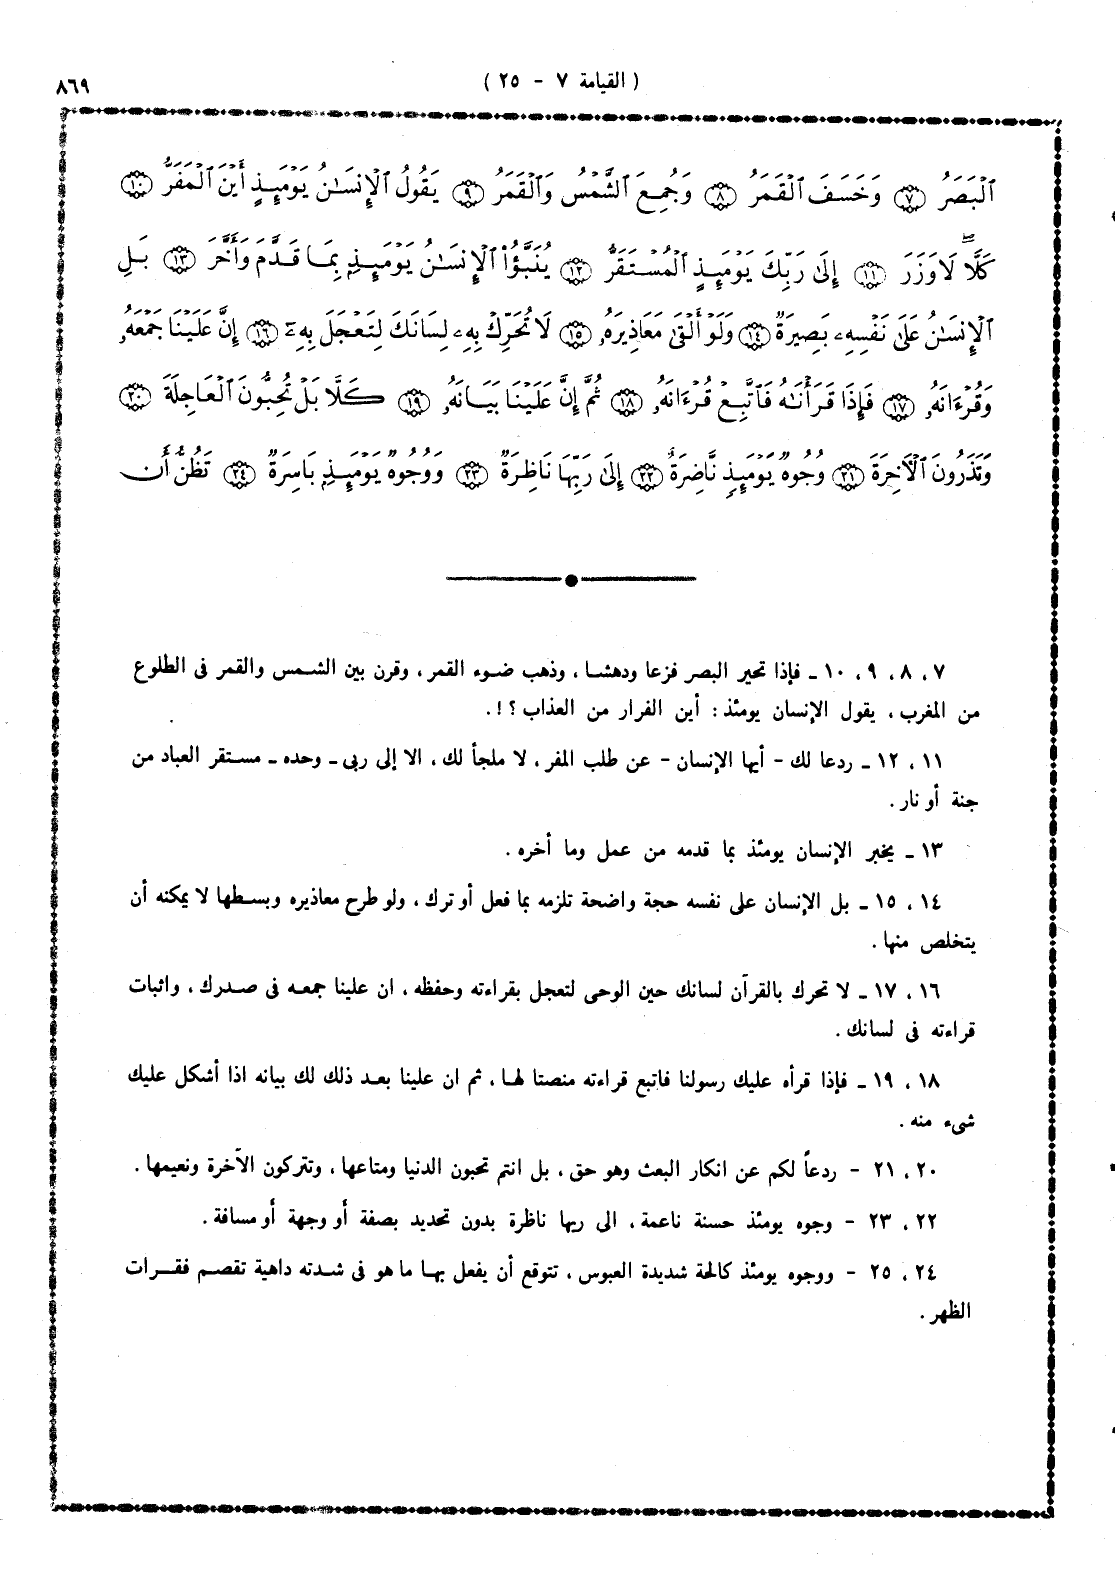 ٨٦٩
( القيامة ٧ - ٢٥ )
ٱلۡبَصَرُ ٧ وَخَسَفَ ٱلۡقَمَرُ ٨ وَجُمِعَ ٱلشَّمۡسُ وَٱلۡقَمَرُ ٩ يَقُولُ ٱلۡإِنسَٰنُ يَوۡمَئِذٍ أَيۡنَ ٱلۡمَفَرُّ ١٠
كَلَّا لَا وَزَرَ ١١ إِلَىٰ رَبِّكَ يَوۡمَئِذٍ ٱلۡمُسۡتَقَرُّ ١٢ يُنَبَّؤُاْ ٱلۡإِنسَٰنُ يَوۡمَئِذِۭ بِمَا قَدَّمَ وَأَخَّرَ ١٣ بَلِ
ٱلۡإِنسَٰنُ عَلَىٰ نَفۡسِهِۦ بَصِيرَةٞ ١٤ وَلَوۡ أَلۡقَىٰ مَعَاذِيرَهُۥ ١٥ لَا تُحَرِّكۡ بِهِۦ لِسَانَكَ لِتَعۡجَلَ بِهِۦٓ ١٦ إِنَّ عَلَيۡنَا جَمۡعَهُۥ
وَقُرۡءَانَهُۥ ١٧ فَإِذَا قَرَأۡنَٰهُ فَٱتَّبِعۡ قُرۡءَانَهُۥ ١٨ ثُمَّ إِنَّ عَلَيۡنَا بَيَانَهُۥ ١٩ كَلَّا بَلۡ تُحِبُّونَ ٱلۡعَاجِلَةَ ٢٠
وَتَذَرُونَ ٱلۡأٓخِرَةَ ٢١ وُجُوهٞ يَوۡمَئِذٖ نَّاضِرَةٌ ٢٢ إِلَىٰ رَبِّهَا نَاظِرَةٞ ٢٣ وَوُجُوهٞ يَوۡمَئِذِۭ بَاسِرَةٞ ٢٤ تَظُنُّ أَن
٧ ، ٨ ، ٩ ، ١٠ ـ فإذا تحير البصر فزعا ودهشا ، وذهب ضوء القمر ، وقرن بين الشمس والقمر فى الطلوع
من المغرب ، يقول الإنسان يومئذ : أين الفرار من العذاب ؟ ! .
١١ ، ١٢ ـ ردعا لك - أيها الإنسان - عن طلب المفر ، لا ملجأ لك ، الا إلى ربى ـ وحده ـ مستقر العباد من
جنة أو نار .
١٣ ـ يخبر الإنسان يومئذ بما قدمه من عمل وما أخره .
١٤ ، ١٥ ـ بل الإنسان على نفسه حجة واضحة تلزمه بما فعل أو ترك ، ولو طرح معاذيره وبسطها لا يمكنه أن
يتخلص منها .
١٦ ، ١٧ ـ لا تحرك بالقرآن لسانك حين الوحى لتعجل بقراءته وحفظه ، ان علينا جمعه فى صدرك ، واثبات
قراءته فى لسانك .
١٨ ، ١٩ ـ فإذا قرأه عليك رسولنا فاتبع قراءته منصتا لها ، ثم ان علينا بعد ذلك لك بيانه اذا أشكل عليك
شىء منه .
٢٠ ، ٢١ - ردعاً لكم عن انكار البعث وهو حق ، بل انتم تحبون الدنيا ومتاعها ، وتتركون الآخرة ونعيمها .
٢٢ ، ٢٣ - وجوه يومئذ حسنة ناعمة ، الى ربها ناظرة بدون تحديد بصفة أو وجهة أو مسافة .
٢٤ ، ٢٥ - ووجوه يومئذ كالحة شديدة العبوس ، تتوقع أن يفعل بها ما هو فى شدته داهية تقصم فقرات
الظهر .